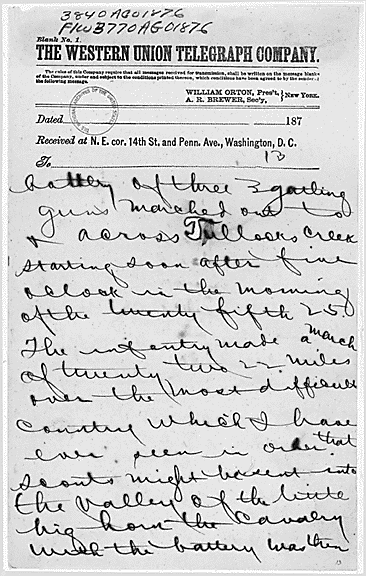 3840 AGO 1876
F/W B770 AGO 1876
Blank No. 1.
THE WESTERN UNION TELEGRAPH COMPANY.
The rules of this Company require that all messages received for transmission, shall be written on the message blanks
of the Company, under and subject to the conditions printed thereon, which conditions have been agreed to by the sender of
the following message.
WILLIAM ORTON, Pres't,
A. R. BREWER, Sec'y,
NEW YORK.
Dated 187
Received at N. E. cor. 14th St. and Penn. Ave., Washington, D. C.
To 13
battery of three 3 gatling
guns marched out to
& across Tullocks Creek
starting soon after five
oclock in the morning
of the twenty fifth 25
The infantry made a march
of twenty two 22 miles
over the most difficult
country which I have
ever seen in order that
scouts might be sent into
the valley of the little
big horn the Cavalry
with the battery was then